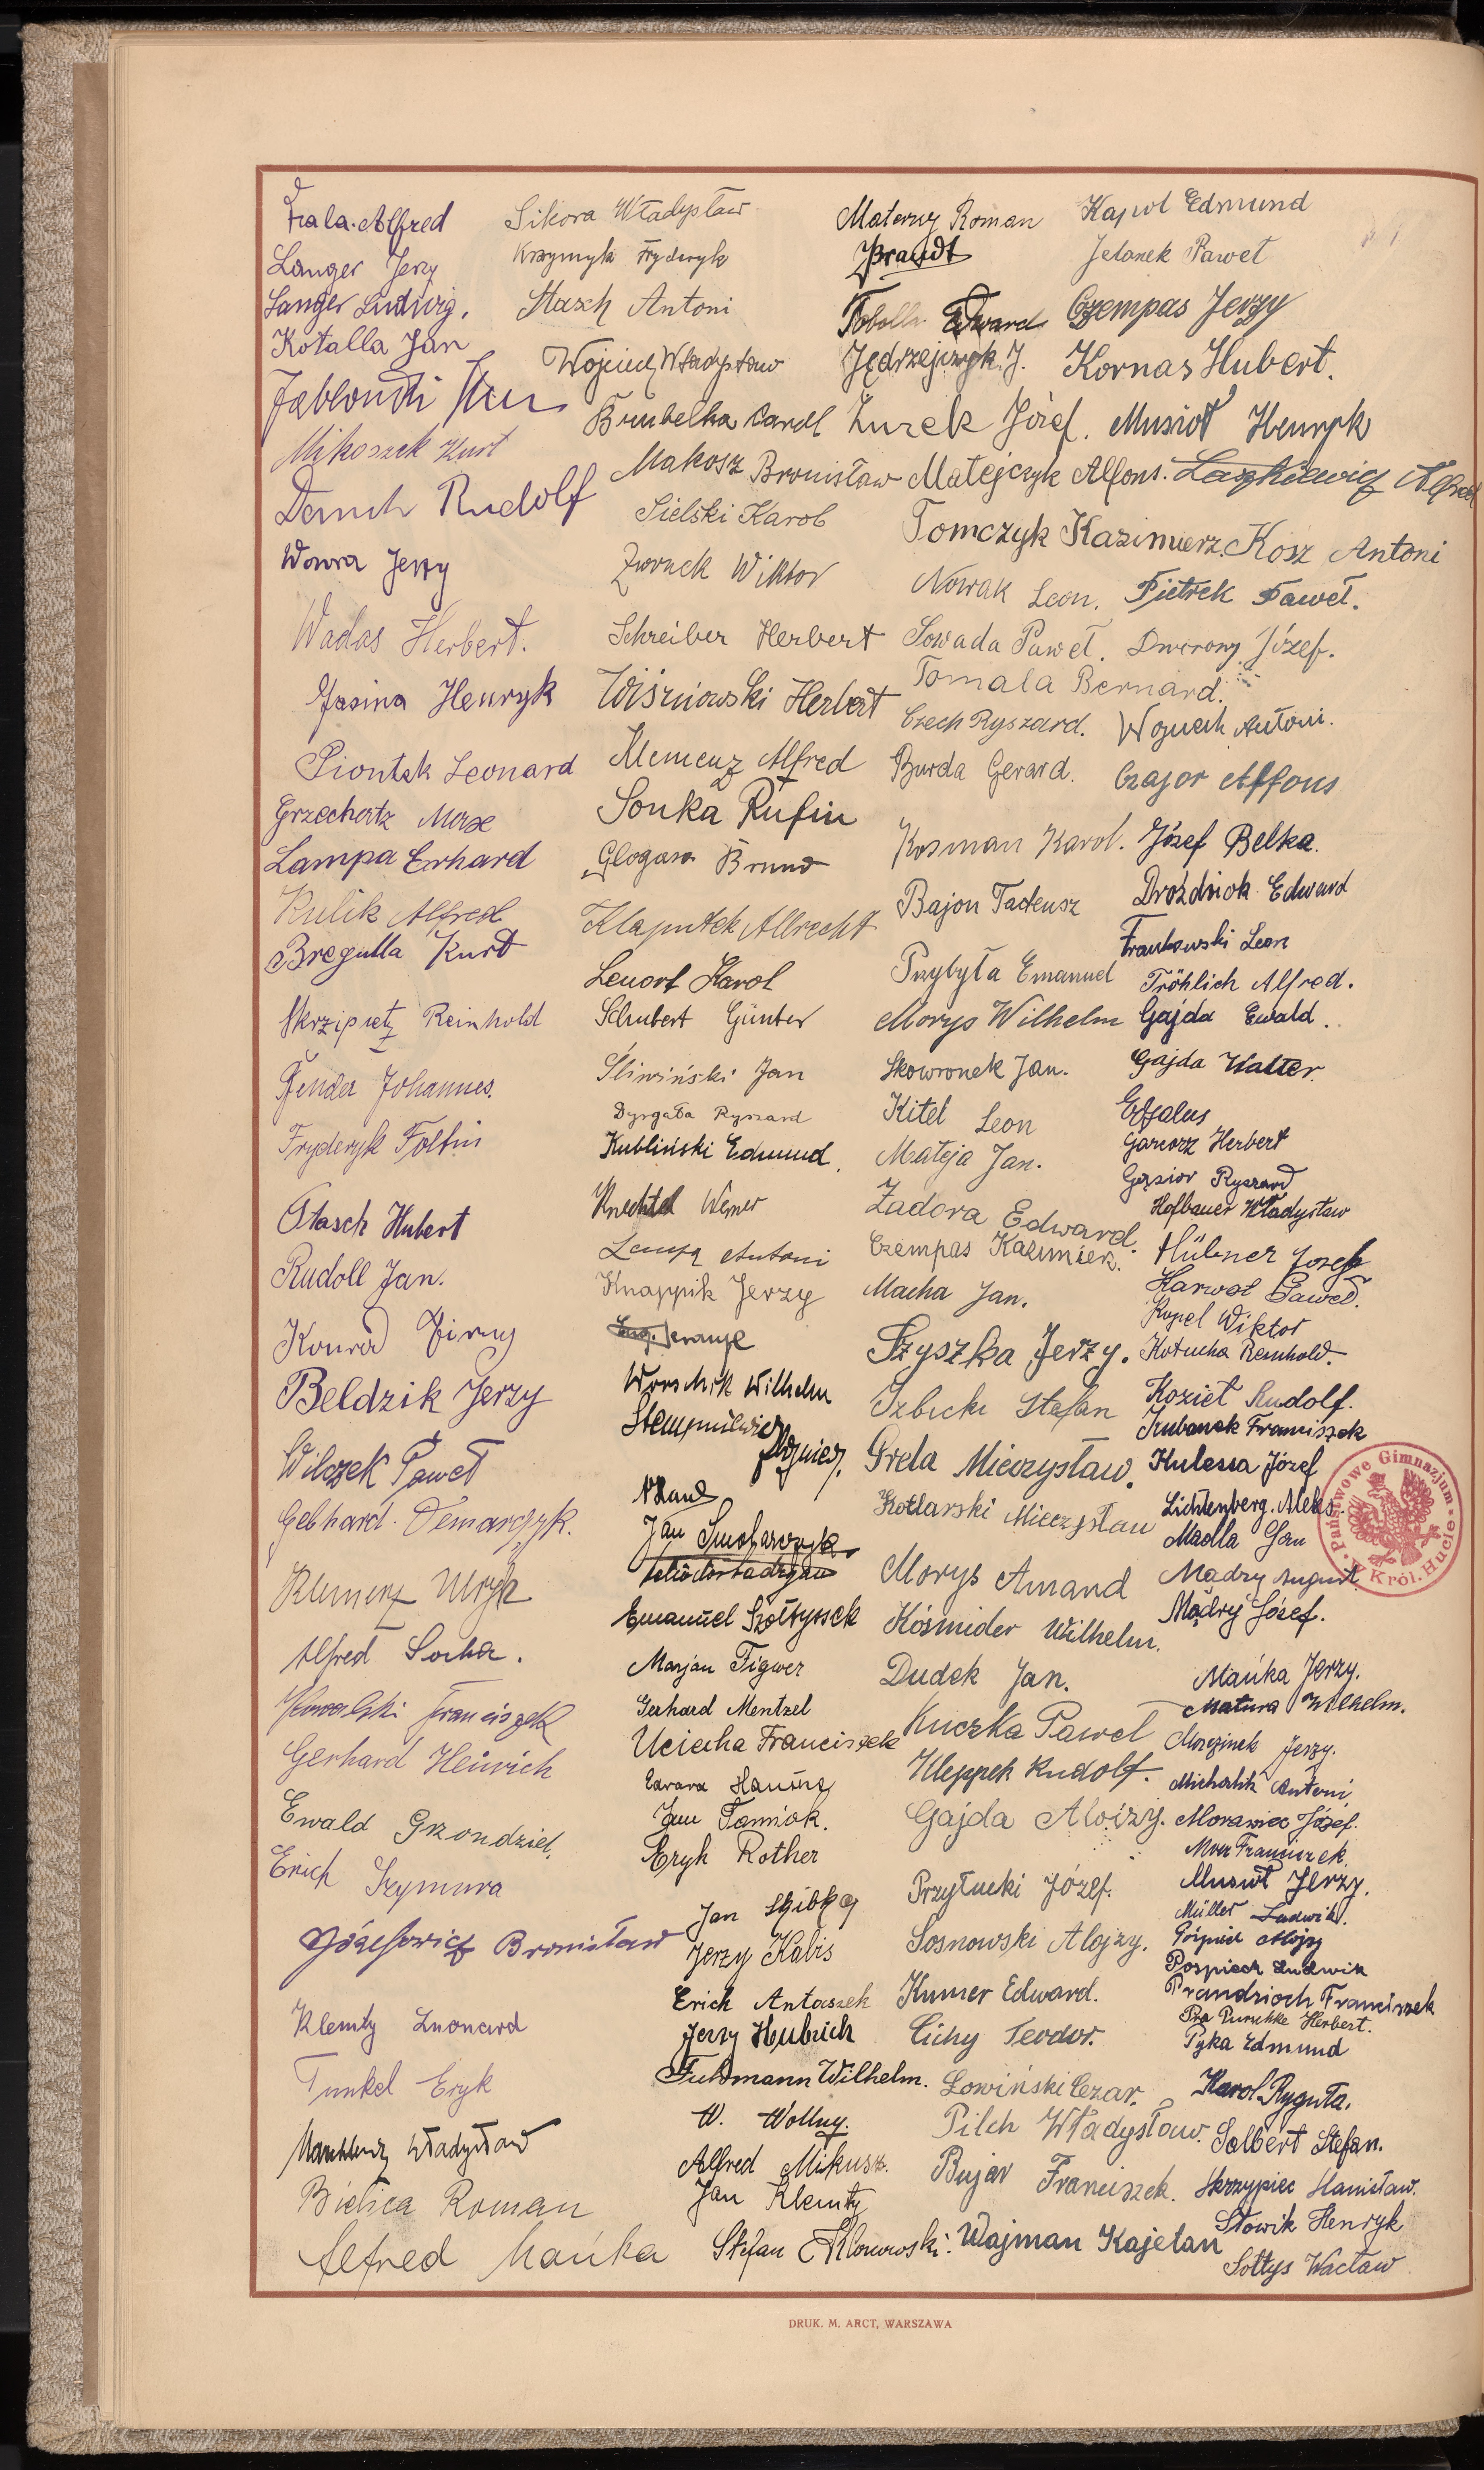 Fala Alfred
Langer Jerzy
Langer Ludwig.
Kotalla Jan
Jabłoński
Mikoszek Kurt
Danch Rudolf
Wowra Jerzy
Wadas Herbert.
Jasina Henryk
Piontek Leonard
Grzechatz Max
Lampa Erhard
Kulik Alfred
Bregulla Kurt
Skrzipietz Reinhold
Fender Johannes.
Fryderyk Foltin
Stasch Hubert
Rudoll Jan.
Konrad Zirny
Beldzik Jerzy
Wilczek Paweł
Gebhard Demarczyk.
Klemenz
Alfred Socha.
Kowalski Franciszek
Gerhard Heinrich
Ewald Grzondziel.
Erich Szymura
Józefowicz Bronisław
Klemty Leonard
Tunkel Eryk
Władysław
Bielica Roman
Alfred Mańka
Sikora Władysław
Krzymyk Fryderyk
Stasch Antoni
Wojciech Władysław
Brubelka Karol
Makosz Bronisław
Sielski Karol
Wiktor
Schreiber Herbert
Wiśniowski Herbert
Klemenz Alfred
Sonka Rufin
Glogasa Bruno
Klaputek Albrecht
Lenort Karol
Schubert Günter
Śliwiński Jan
Dyrgała Ryszard
Kubliński Edmund.
Knechtel Werner
Antoni
Knappik Jerzy
Worschik Wilhelm
Stempniewicz
Zbigniew.
Jan Smolarczyk
Emanuel Szołtyssek
Marjan Figwer
Gerhard Mentzel
Uciecha Franciszek
Edward
Jan Tomiak.
Eryk Rother
Jan Skibka
Jerzy Kabis
Erich Antaszek
Jerzy Hubrich
Fuhrmann Wilhelm.
W. Wollny.
Alfred Mikusz.
Jan Klemty
Stefan Klonowski.
Materny Roman
Brandt
Tobolla Edward
Jędrzejczyk J.
Żurek Józef.
Matejczyk Alfons.
Tomczyk Kazimierz.
Nowak Leon.
Sowada Paweł.
Tomala Bernard.
Czech Ryszard.
Burda Gerard.
Kosman Karol.
Bajon Tadeusz
Przybyła Emanuel
Morys Wilhelm
Skowronek Jan.
Kitel Leon
Mateja Jan.
Zadora Edward.
Czempas Kazimierz.
Macha Jan.
Szyszka Jerzy.
Izbicki Stefan
Grela Mieczysław.
Kotlarski Mieczysław
Morys Amand
Kośmider Wilhelm.
Dudek Jan.
Kuczka Paweł
Kleppek Rudolf.
Gajda Alojzy.
Przyłucki Józef.
Sosnowski Alojzy.
Kumer Edward.
Cichy Teodor.
Łowiński Cezar.
Pilch Władysław.
Bujar Franciszek.
Wajman Kajetan
Kapol Edmund
Jelonek Paweł
Czempas Jerzy
Kornas Hubert.
Musioł Henryk
Laszkiewicz Alfred
Kosz Antoni
Pietrek Paweł.
Dworony Józef.
Wojciech Antoni.
Czajor Alfons
Józef Belka.
Droździok Edward
Frankowski Leon
Fröhlich Alfred.
Gajda Ewald.
Gajda Walter.
Garcorz Herbert
Gąsior Ryszard
Hofbauer Władysław
Hübner Josef
Harwot Paweł.
Kopel Wiktor
Kotucha Reinhold.
Kozieł Rudolf.
Kubanek Franciszek
Kulessa Józef
Lichtenberg. Aleks.
Madla Jan
Mądry August.
Mądry Józef.
Mańka Jerzy.
Matura Wilhelm.
Mrozinek Jerzy.
Michalik Antoni.
Morawiec Józef.
Mróz Franciszek.
Musioł Jerzy.
Müller Ludwik.
Alojzy
Pospiech Ludwik
Prandzioch Franciszek
Puruchke Herbert.
Pyka Edmund
Karol Ryguła.
Solbert Stefan.
Skrzypiec Stanisław.
Słowik Henryk
Sołtys Wacław
Państwowe Gimnazjum w Król. Hucie
DRUK. M. ARCT, WARSZAWA